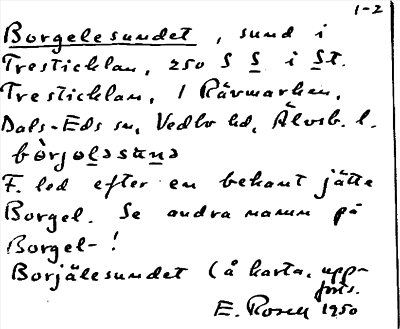 1-2
Borgelesundet, sund i
Tresticklan, 250 S S. i St.
Tresticklan, i Rävmarken,
Dals-Eds sn, Vedbo hd, Älvsb. l.
bòrjoləsunə
F. led efter en bekant jätte
Borgel. Se andra namn på
Borgel- !
Borjälesundet (å karta, upp-
fnts.
E. Rosell 1950